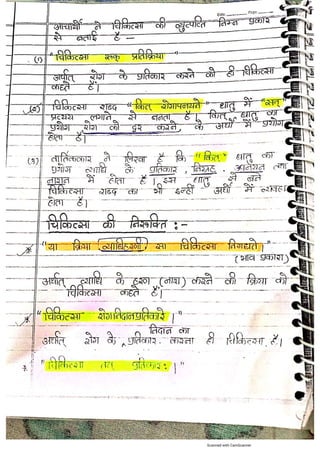 Date ___ Page ___
आचार्यों ने चिकित्सा की व्युत्पत्ति निम्न प्रकार
से बताई है —
(1) "चिकित्सा रुक् प्रतिक्रिया"
अर्थात् रोग के प्रतिकार करने को ही चिकित्सा
कहते हैं।
(2) चिकित्सा शब्द "कित् रोगापनयने" धातु में "सन्"
प्रत्यय लगाने से बनता है। कित् धातु का
प्रयोग रोग को दूर करने, के अर्थ में प्रयोग
होता है।
(3) वार्तिककार ने लिखा है कि "कित्" धातु का
प्रयोग व्याधि के प्रतिकार, निग्रह, अपनयन तथा
नाशन में होता है। इस धातु से बने
चिकित्सा शब्द का भी इन्हीं अर्थ में व्यवहार
होता है।
चिकित्सा की निरूक्ति :-
"या क्रिया व्याधिहरणी सा चिकित्सा निगद्यते।"
(भाव प्रकाश)
अर्थात् व्याधि के हरण (नाश) करने की क्रिया को
चिकित्सा कहते हैं।
"चिकित्सा रोगनिदानप्रतिकारे।"
निदान का
अर्थात् रोग के प्रतिकार करना ही चिकित्सा है।
"चिकित्सा प्रतिकारः।"
Scanned with CamScanner